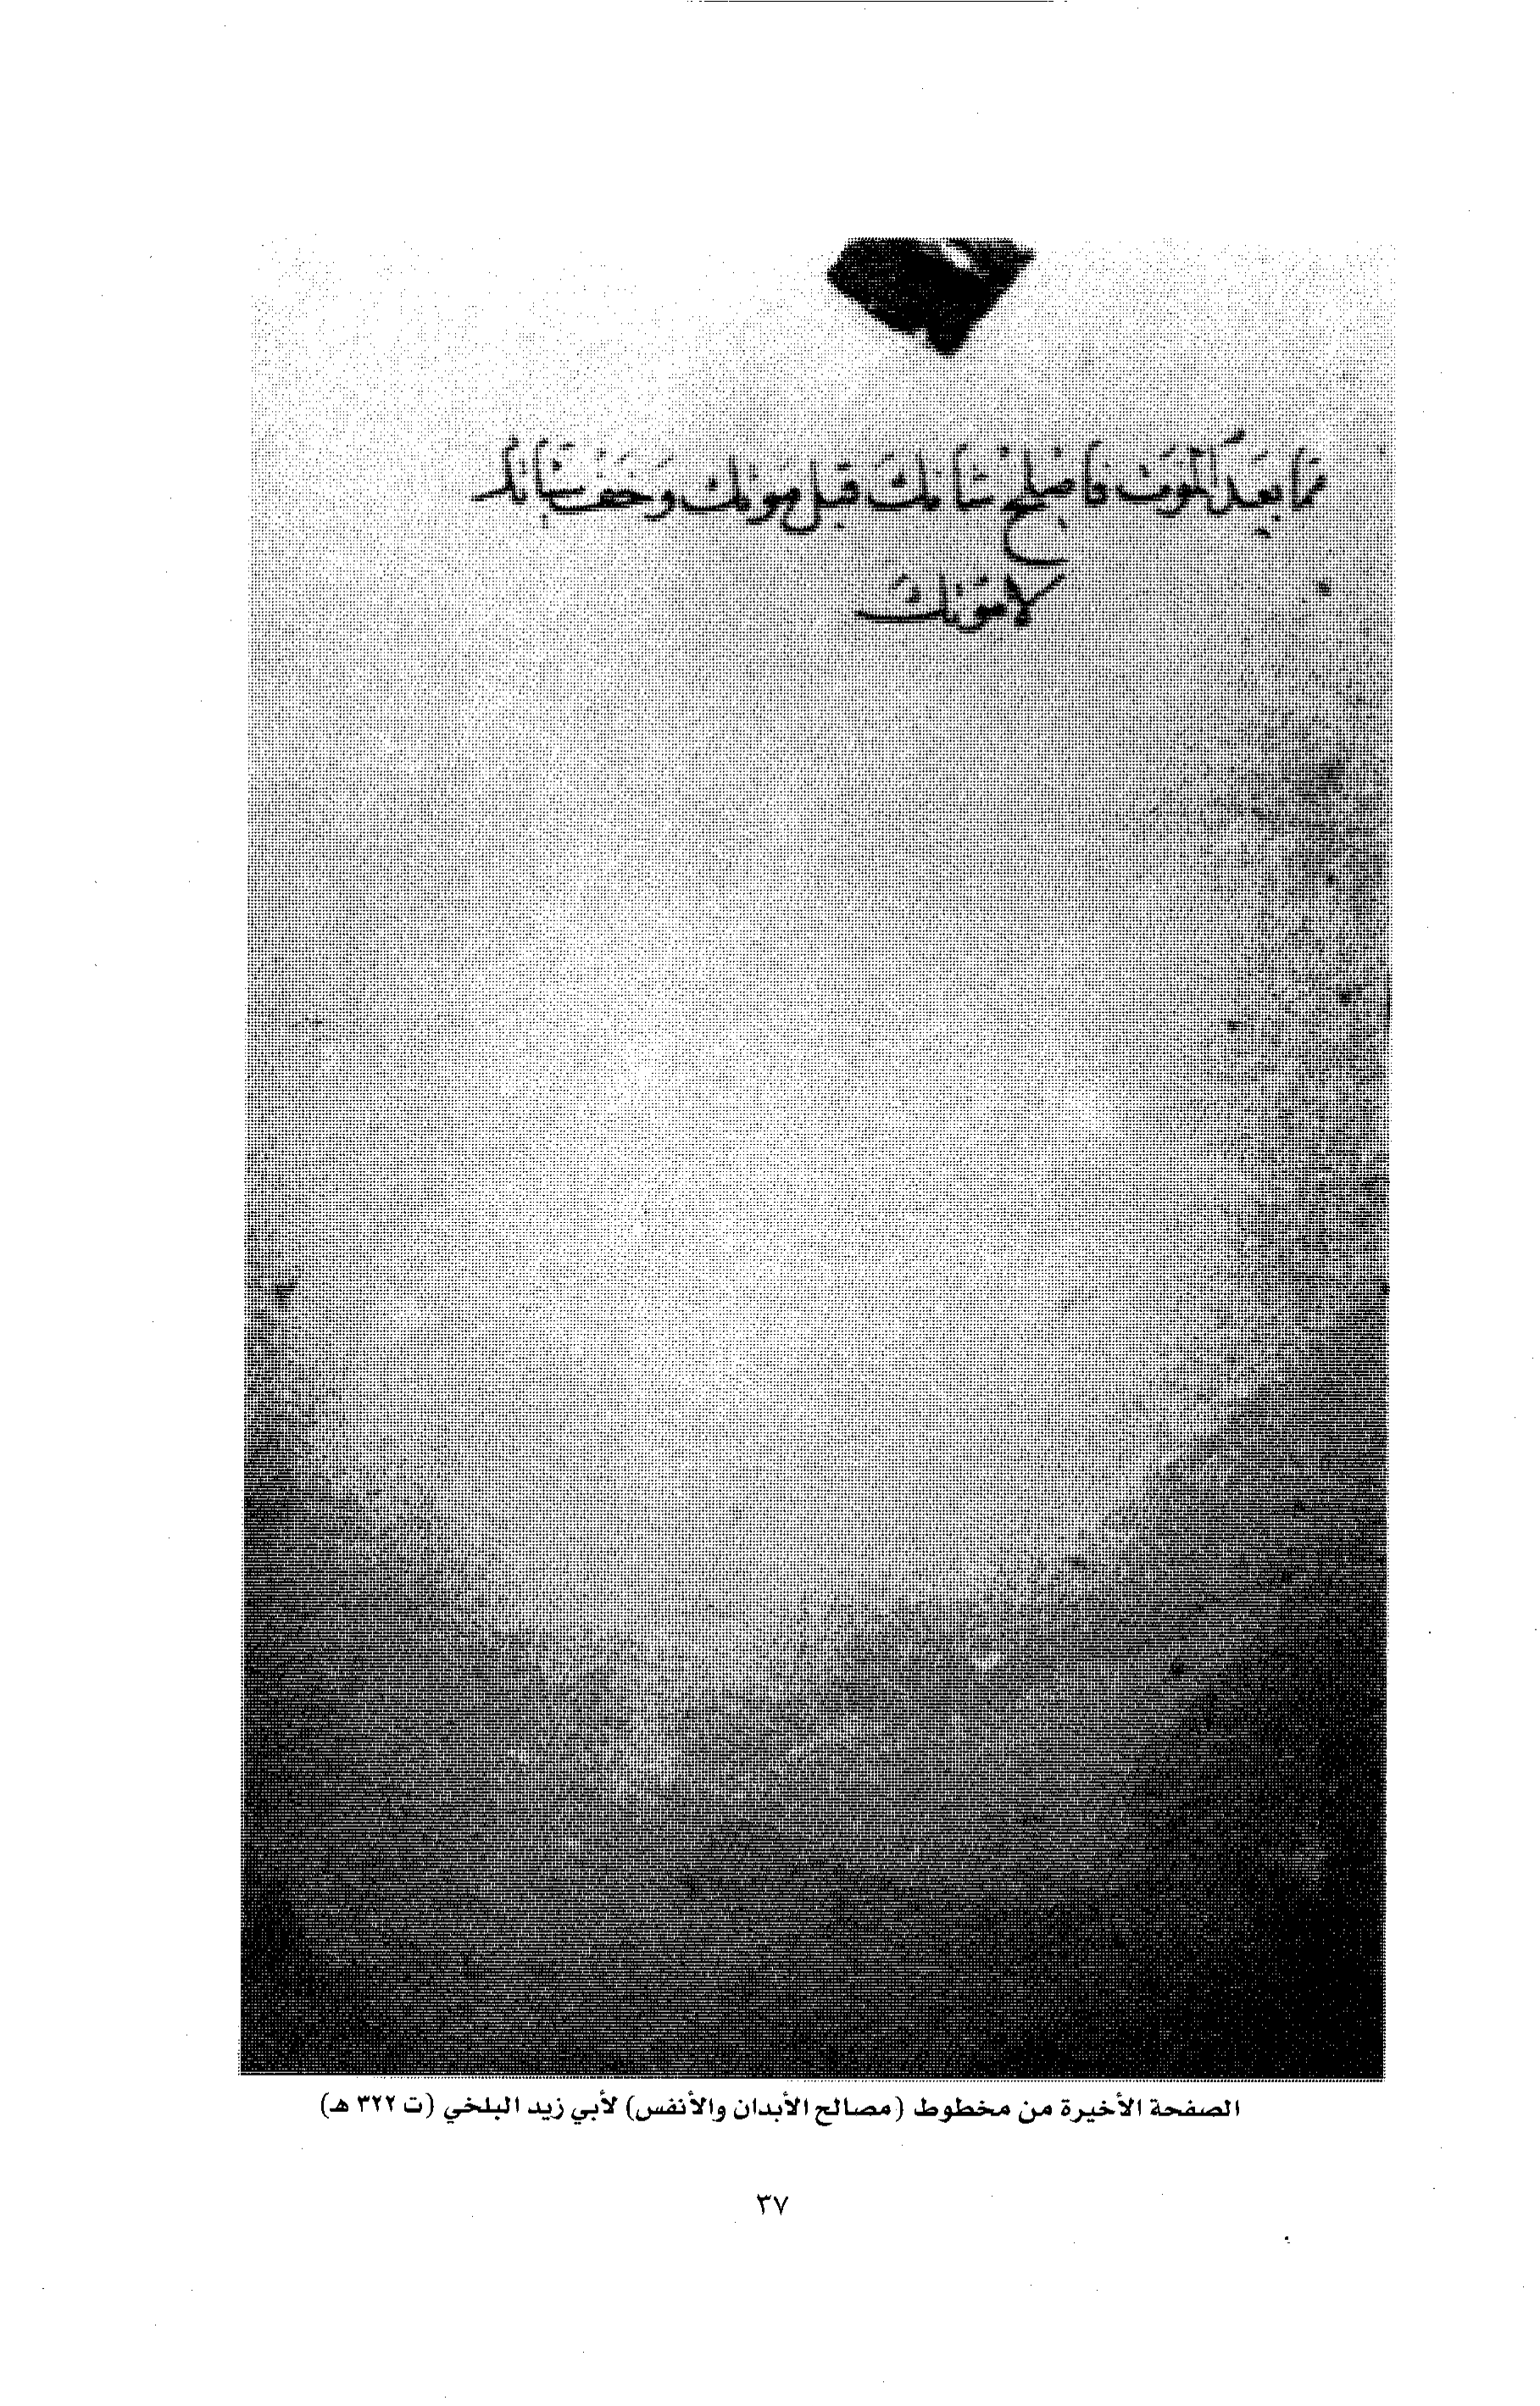 مما بعد الموت فاصلح شانك قبل موتك وخف شانك
لا موتك
الصفحة الأخيرة من مخطوط (مصالح الأبدان والأنفس) لأبي زيد البلخي (ت ٣٢٢ هـ)
٣٧